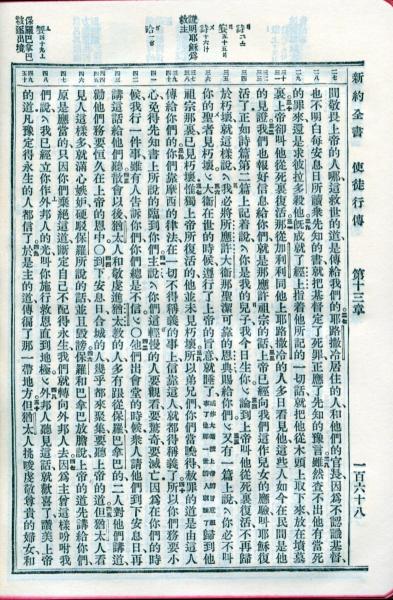 新約全書 使徒行傳 第十三章 一百六十八
證明耶穌爲救主
保羅巴拿巴被逐出境
間敬畏上帝的人哪這救世的道是傳給我們的耶路撒冷居住的人和他們的官長因爲不認識基督
也不明白每安息日所讀衆先知的書就把基督定了死罪正應了先知的豫言雖然查不出他有當死
的罪來還是求彼拉多殺他旣成就了經上指着他所記的一切話就把他從木頭上取下來放在墳墓
裏上帝卻叫他從死裏復活那從加利利同他上耶路撒冷的人多日看見他這些人如今在民間是他
的見證我們也報好信息給你們就是那應許祖宗的話上帝已經向我們這作兒女的應驗叫耶穌復
活了正如詩篇第二篇上記着說你是我的兒子我今日生你論到上帝叫他從死裏復活不再歸
於朽壞就這樣說我必將所應許大衛那聖潔可靠的恩典賜給你們又有一篇上說你必不叫
你的聖者見朽壞大衛在世的時候遵行了上帝的旨意就睡了歸到他
祖宗那裏已見朽壞惟獨上帝所復活的他並未見朽壞所以弟兄們你們當曉得赦罪的道是由這人
傳給你們的你們靠摩西的律法在一切不得稱義的事上信靠這人就都得稱義了所以你們務要小
心免得先知書上所說的臨到你們主說你們這輕慢的人要觀看要驚奇要滅亡因爲在你們的時
候我行一件事雖有人告訴你們你們總是不信○他們出會堂的時候衆人請他們到下安息日再
講這話給他們聽散會以後猶太人和敬虔進猶太教的人多有跟從保羅巴拿巴的二人對他們講道
勸他們務要恒久在上帝的恩中○下安息日合城的人幾乎都來聚集要聽上帝的道但猶太人看
見人這樣多就滿心嫉妒硬駁保羅所說的話並且毀謗保羅和巴拿巴放膽說上帝的道先講給你們
原是應當的只因你們棄絕這道斷定自己不配得永生我們就轉向外邦人去因爲主曾這樣吩咐我
們說我已經立你作外邦人的光叫你施行救恩直到地極外邦人聽見這話就歡喜了讚美上帝
的道凡豫定得永生的人都信了於是主的道傳徧了那一帶地方但猶太人挑唆虔敬尊貴的婦女和